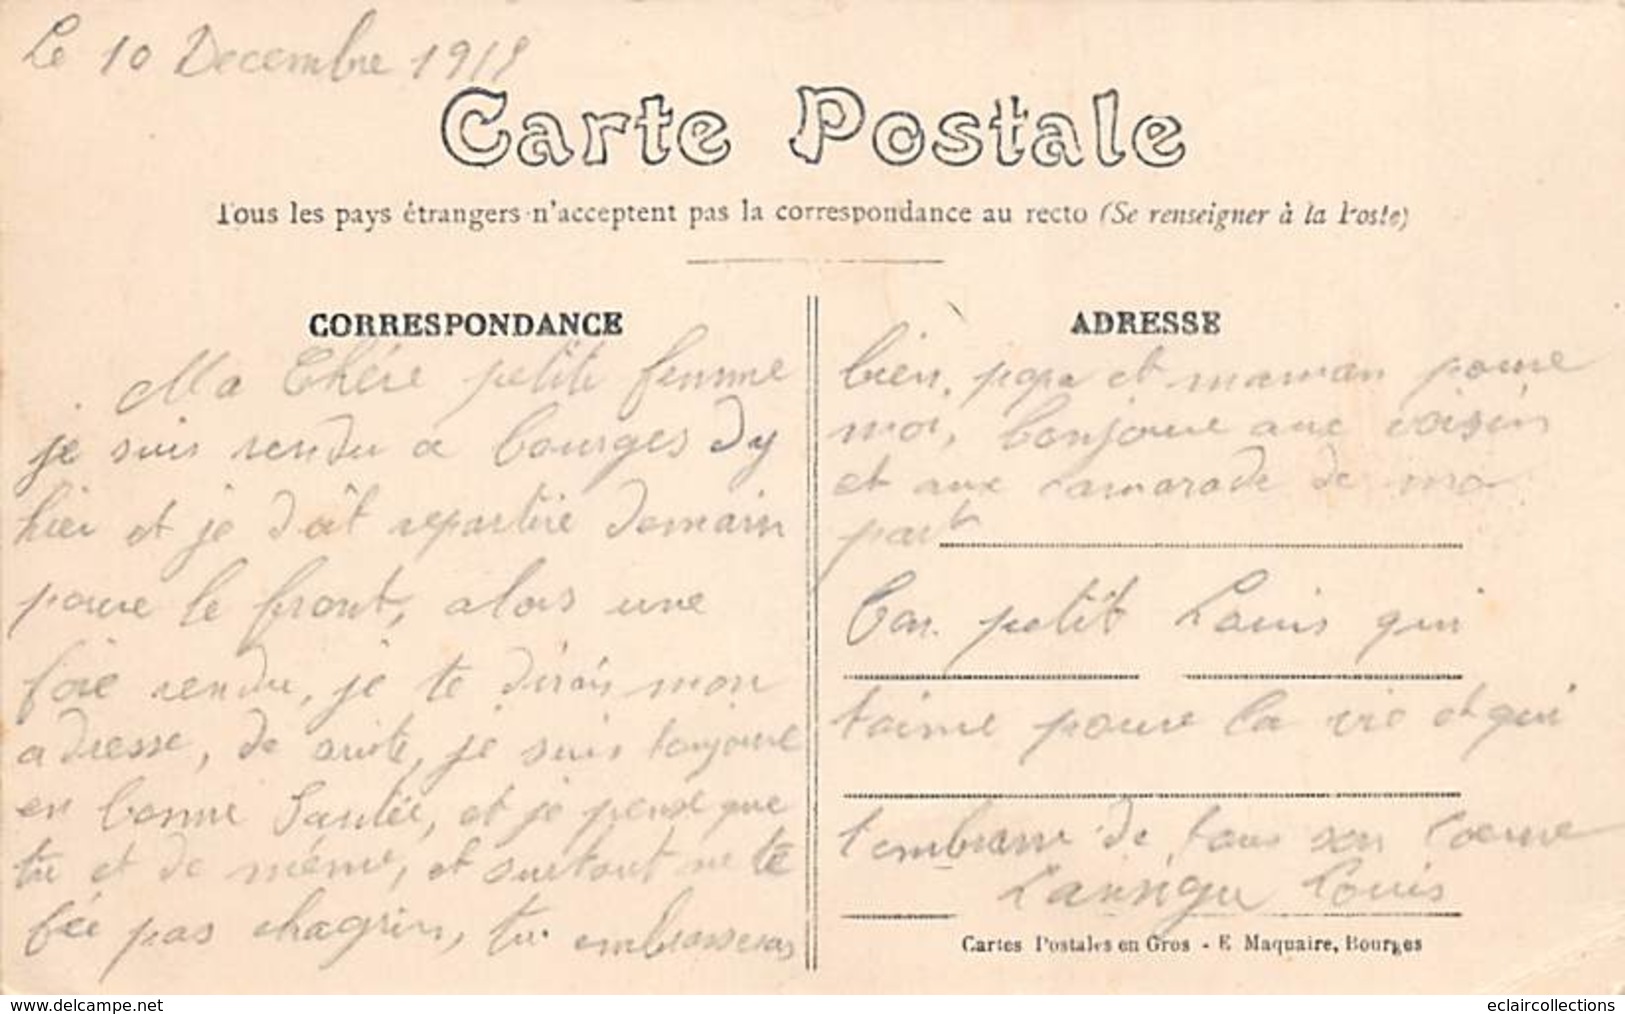 Le 10 Decembre 191
Carte Postale
Tous les pays étrangers n'acceptent pas la correspondance au recto (Se renseigner à la Poste)
CORRESPONDANCE
Ma Chére petite femme
je suis rendu a bourges dy
hier et je doit repartire demain
poure le front, alors une
foie rendu, je te dirais mon
adresse, de suite, je suis toujoure
en bonne Santée, et je pense que
tu et de même, et surtout ne te
fée pas chagrin, tu embrasseras
ADRESSE
bien, papa et maman poure
moi, bonjoure aux voisin
et aux camarade de ma
part
Ton petit Louis qui
taime poure la vie et qui
tembrasse de tous son coeure
Louis
Cartes Postales en Gros - E Maquaire, Bourges
www.delcampe.net
eclaircollections